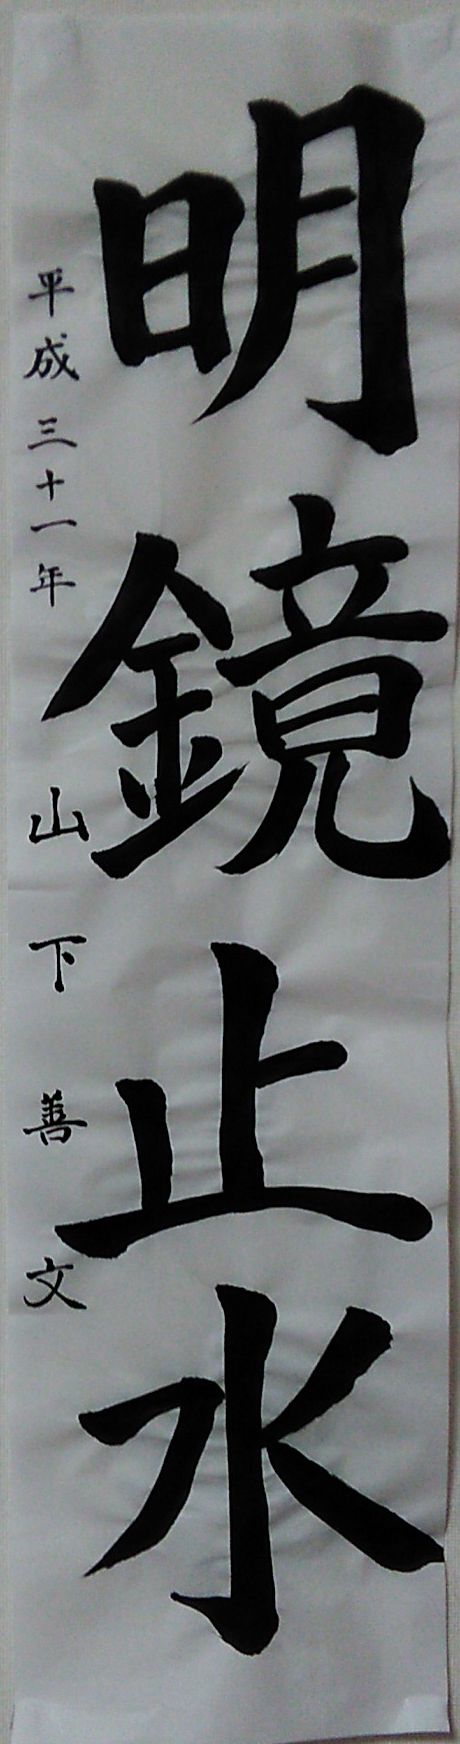 明鏡止水
平成三十一年 山下善文